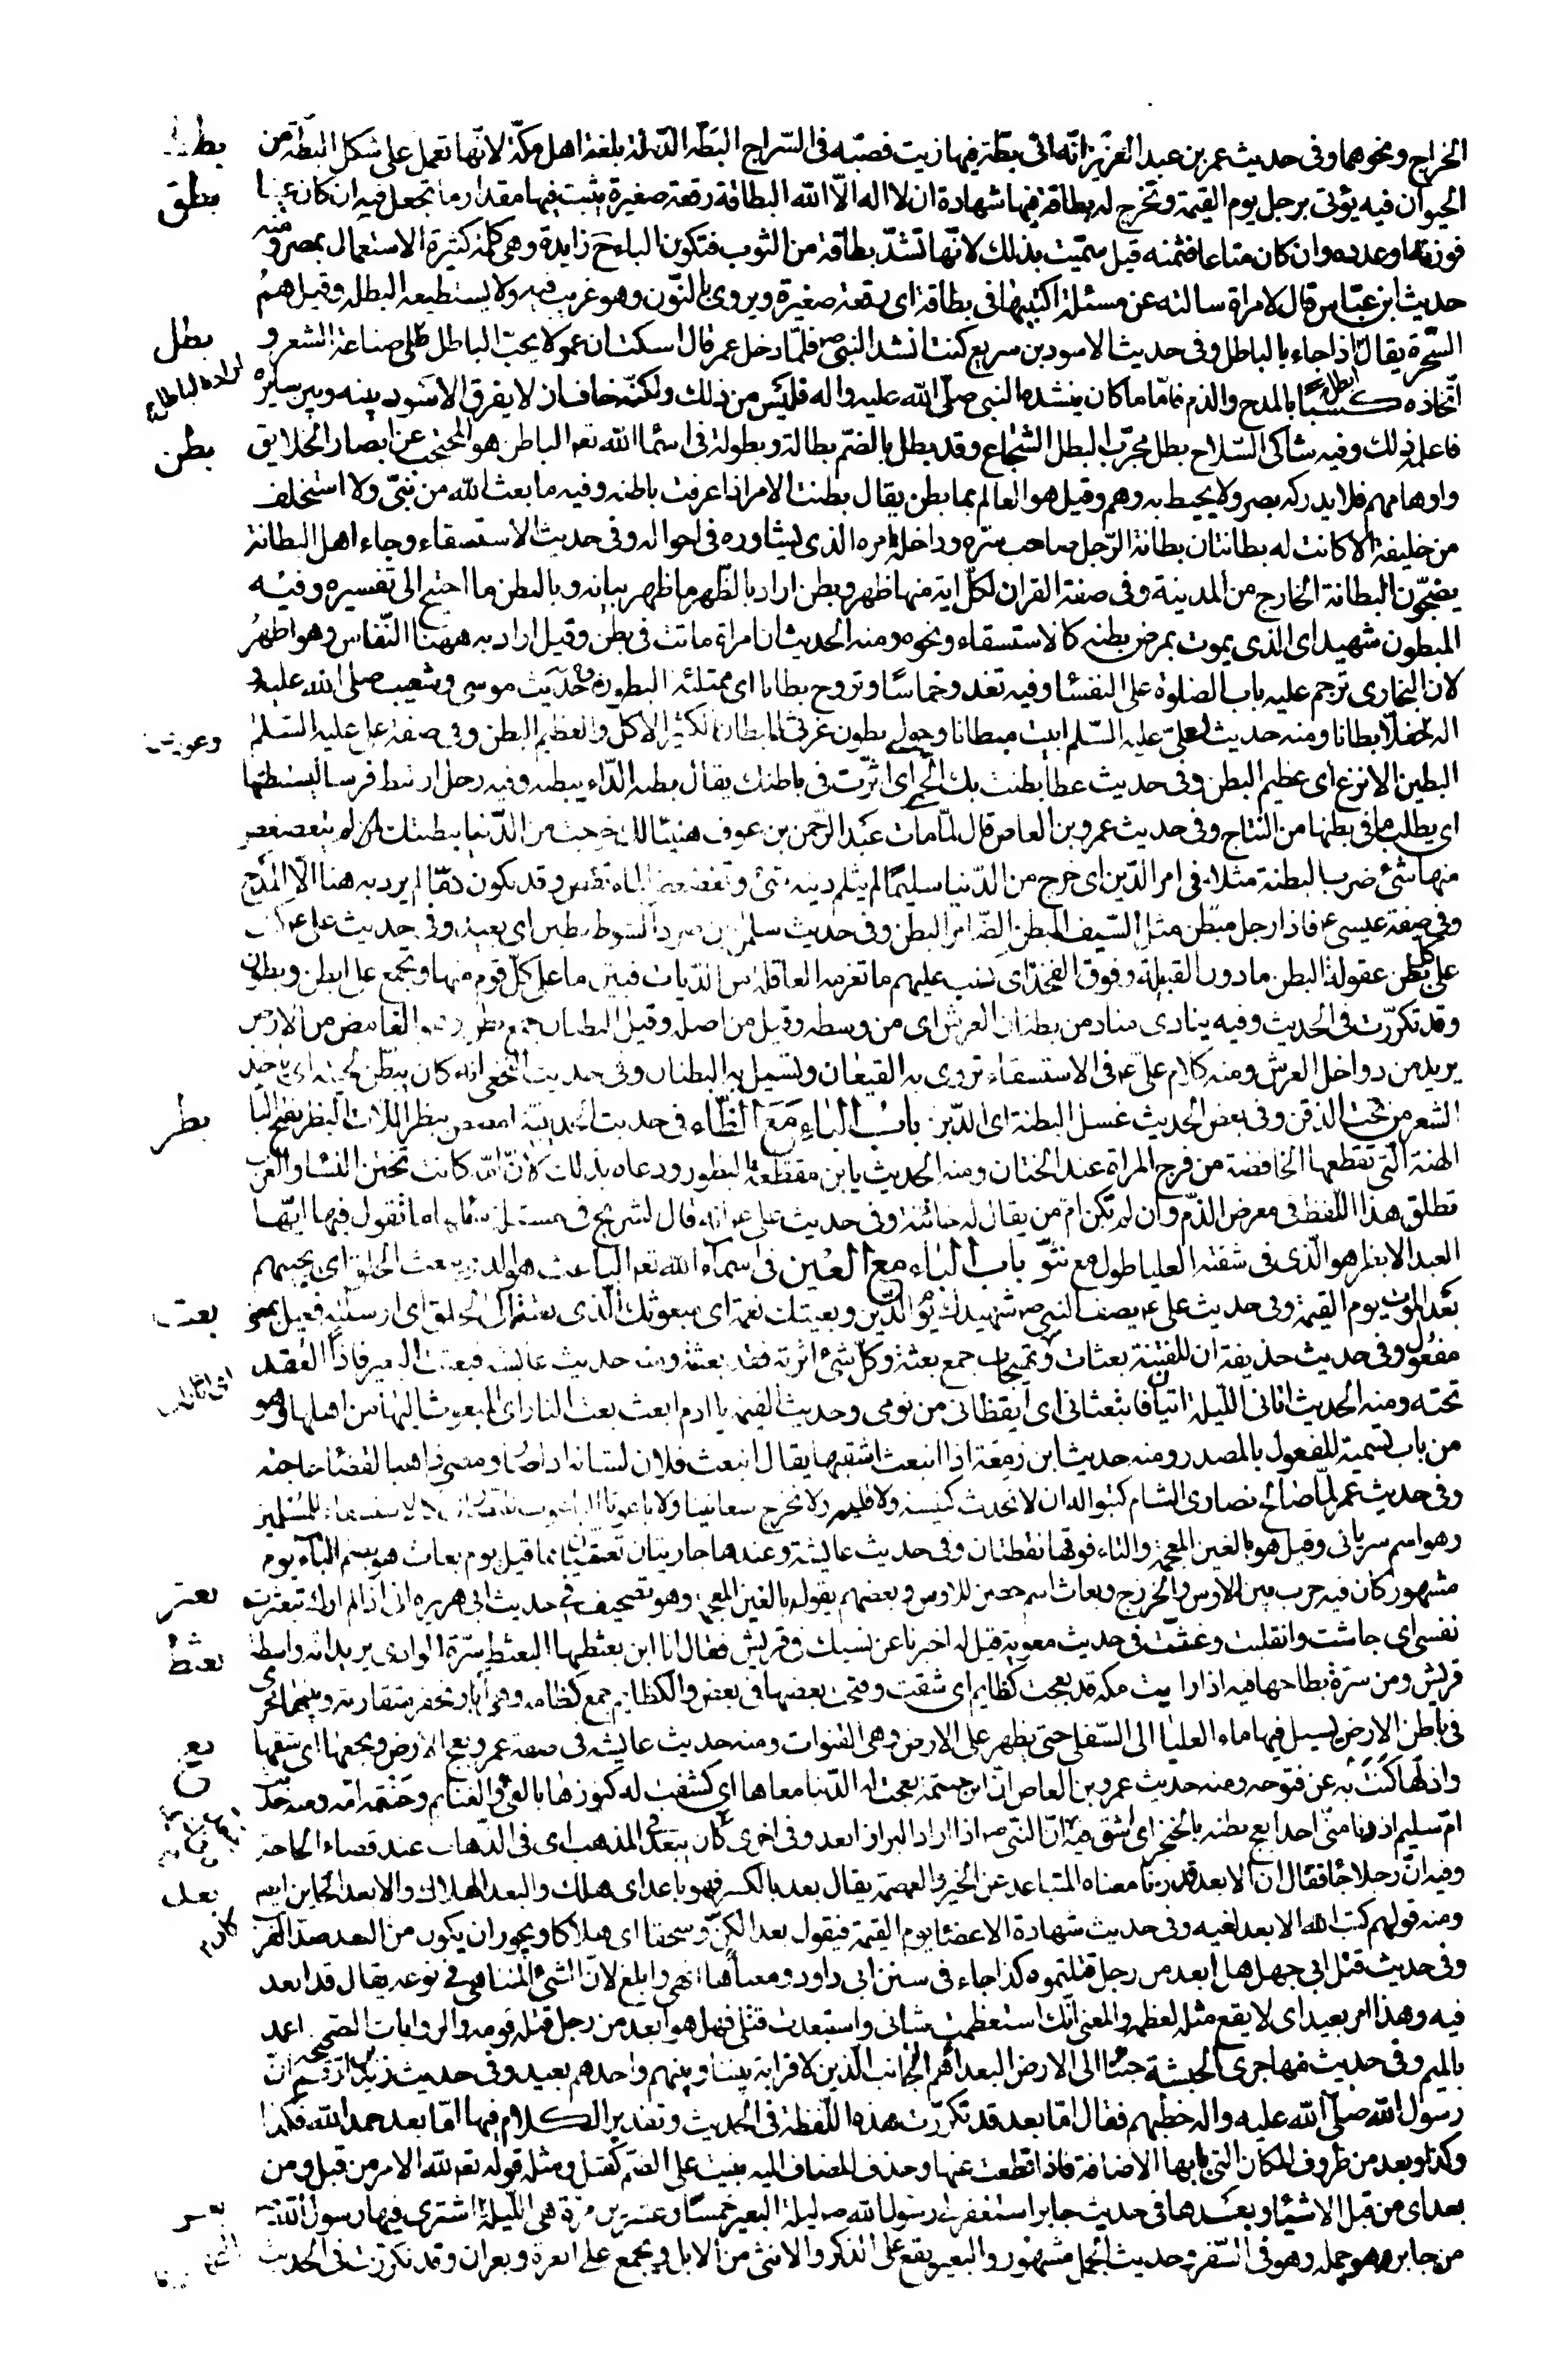 الخراج ونحوهما وفى حديث عمر بن عبد العزيز انّه اتى بطّة فيها زيت فصبّه فى السّراج البطّة الدّبّة بلغة اهل مكّة لانّها تعمل على شكل البطّة من
الحيوان فيه يؤتى برجل يوم القيمة وتخرج له بطاقة فيها شهادة ان لا اله الّا الله البطاقة رقعة صغيرة يثبت فيها مقدار ما تجعل فيه ان كان عينا
فوزنه او عدده وان كان متاعا فثمنه قيل سمّيت بذلك لانّها تشدّ بطاقة من الثوب فتكون الباء ح زايدة وهى كلمة كثيرة الاستعمال بمصر ومنه
حديث ابن عبّاس قال لامراة سالته عن مسئلة اكتبيها فى بطاقة اى رقعة صغيرة ويروى بالنّون وهو غريب فيه ولا يستطيعه البطلة وقيل هم
السّحرة يقال ابطل اذا جاء بالباطل وفى حديث الاسود بن سريع كنت انشد النبى ص فلمّا دخل عمر قال اسكت ان عمر لا يحبّ الباطل صناعة الشعر و
اتّخاذه كسبًا بالمدح والذم فامّا ما كان ينشده النبى صلّى الله عليه واله فليس من ذلك ولكنّه خاف ان لا يفرق الاسود بينه وبين سايره
فاعلمه ذلك وفيه شاكى السّلاح بطل مجرّب البطل الشّجاع وقد بطل بالضمّ بطالة وبطولة فى اسماء الله تعه الباطن هو المحتجب عن ابصار الخلايق
واوهامهم فلا يدركه بصر ولا يحيط به وهم وقيل هو العالم بما بطن يقال بطنت الامر اذا عرفت باطنه وفيه ما بعث الله من نبىّ ولا استخلف
من خليفة الا كانت له بطانتان بطانة الرّجل صاحب سرّه وداخلة امره الذى يشاوره فى احواله وفى حديث الاستسقاء وجاء اهل البطانة
يضجّون البطانة الخارج من المدينة وفى صفة القران لكلّ اية منها ظهر وبطن اراد بالظّهر ما ظهر بيانه وبالبطن ما احتيج الى تفسيره وفيه
المبطون شهيد اى الذى يموت بمرض بطنه كالاستسقاء ونحوه ومنه الحديث ان امراة ماتت فى بطن وقيل اراد به ههنا النّفاس وهو اظهرُ
لان البخارى ترجم عليه باب الصلوة على النفساء وفيه تغدو خماصًا وتروح بطانا اى ممتلئة البطون وفى حديث موسى وشعيب صلى الله عليه و
بطانا ومنه حديث على عليه السّلم ابيت مبطانا وحولى بطون غرثى المبطان الكثير الاكل والعظيم البطن وفى صفة على عليه السّلم
البطين الانزع اى عظيم البطن وفى حديث عطا بطنت بك الحمّى اى اثّرت فى باطنك يقال بطنه الدّاء يبطنه وفيه رجل ارتبط فرسا ليستبطنها
اى يطلب ما فى بطنها من النّتاج وفى حديث عمرو بن العاص قال لمّا مات عبد الرّحمن بن عوف هنيئا لك خرجت من الدّنيا ببطنتك لم يتغضغض
منها شئ ضرب البطنة مثلا فى امر الدّين اى خرج من الدّنيا سليمًا لم يثلم دينه شئ وتغضغض الماء نقص وقد يكون ذمّا لم يرد به هنا الّا المدح
وفى صفة عيسى ع فاذا رجل مبطّن مثل السّيف المبطن الضّامر البطن وفى حديث سليمن بن صرد الشوط بطين اى بعيد وفى حديث على ع كتب
على كل بطن عقولة البطن ما دون القبيلة وفوق الفخذ اى كتب عليهم ما تغرمه العاقلة من الدّيات فبيّن ما على كلّ قوم منها ويجمع على ابطن وبطون
وقد تكرّرت فى الحديث وفيه ينادى مناد من بطنان العرش اى من وسطه وقيل من اصله وقيل البطنان جمع بطن وهو الغامض من الارض
يريد من دواخل العرش ومنه كلام على ع فى الاستسقاء تروى به القيعان وتسيل به البطنان وفى حديث النخعى انه كان يبطّن لحيته اى ياخذ
الشعر من تحت الذقن وفى بعض الحديث غسل البطنة اى الدّبر باب الباء مَعَ الظّاء فى حديث الحديبية امصص ببظر اللات البظر بفتح البا
الهنة التى تقطعها الخافضة من فرج المراة عند الختان ومنه الحديث يا ابن مقطّعة البظور ودعاه بذلك لانّ امّه كانت تختن النّساء والعرب
تطلق هذا اللّفظ فى معرض الذّم وان لم تكن ام من يقال له خاتنة وفى حديث على ع انه قال لشريح فى مسئلة سئلها ما تقول فيها ايّها
العبد الابظر هو الّذى فى شفته العليا طول مع نتوّ باب الباء مع العين فى اسماء الله تعه الباعث هو الذى يبعث الخلق اى يحييهم
بعد الموت يوم القيمة وفى حديث على ع يصف النبى ص شهيدك يوم الدّين وبعيثك نعمة اى مبعوثك الّذى بعثته الى الخلق اى ارسلته فعيل بمعنى
مفعول وفى حديث حذيفة ان للفتنة بعثات وتهيجات جمع بعثة وكلّ شئ اثرته فقد بعثته ومنه حديث عايشه فبعثنا البعير فاذا العقد
تحته ومنه الحديث اتانى اللّيلة اتيان فابتعثانى اى ايقظانى من نومى وحديث القيمة يا ادم ابعث بعث النار اى المبعوث اليها من اهلها وهو
من باب تسمية المفعول بالمصدر ومنه حديث ابن زمعة اذا انبعث اشقيها يقال انبعث فلان لشانه اذا ثار ومضى ذاهبا لقضاء حاجته
وفى حديث عمر لمّا صالح نصارى الشام كتبوا له ان لا نحدث كنيسة ولا قلية ولا نخرج سعانينا ولا باعوثا الباعوث للنّصارى كالاستسقاء للمسلمين
وهو اسم سريانى وقيل هو بالغين المعجمة والتاء فوقها نقطتان وفى حديث عايشة وعندها جاريتان تغنّيان بما قيل يوم بعاث هو بضم الباء يوم
مشهور كان فيه حرب بين الاوس والخزرج وبعاث اسم حصن للاوس وبعضهم يقوله بالغين المعجمة وهو تصحيف فى حديث ابى هريره انى اذا لم ارك تبعثرت
نفسى اى جاشت وانقلبت وغثت فى حديث معوية قيل له اخبرنا عن نسبك فى قريش فقال انا ابن بعثطها البعثط سرّة الوادى يريد انه واسطة
قريش ومن سرة بطاحها فيه اذا رايت مكة قد بعجت كظايم اى شقت وفتحت بعضها فى بعض والكظايم جمع كظامه وهى آبار تحفر متقاربة وبينها مجرى
فى باطن الارض يسيل فيها ماء العليا الى السّفلى حتى يظهر على الارض وهى القنوات ومنه حديث عايشه فى صفة عمر وبعج الارض وبخعها اى شقّها
واذلها كنت به عن فتوحه ومنه حديث عمرو بن العاص انّ ابن حنتمة بعجت له الدّنيا معاها اى كشفت له كنوزها بالفئ والغنايم وحنتمه امّه ومنه حديث
امّ سليم اذا دنا منّى احد ابعج بطنه بالخنجر اى اشق فيه انّ النّبى ص اذا اراد البراز ابعد وفى اخرى كان يتبعّد فى المذهب اى فى الذّهاب عند قضاء الحاجة
وفيه انّ رجلا جاء فقال ان الابعد قد زنا معناه المتباعد عن الخير والعصمة يقال بعد بالكسر فهو باعد اى هلك والبعد الهلاك والابعد الخاين ايضا
ومنه قولهم كبّ الله الابعد لفيه وفى حديث شهادة الاعضاء يوم القيمة فيقول بعدا لكنّ وسحقا اى هلاكا ويجوز ان يكون من البعد ضدّ القرب
وفى حديث قتل ابى جهل هل ابعد من رجل قتلتموه كذا جاء فى سنن ابى داود ومعناها انهى وابلغ لانّ الشئ المتناهى فى نوعه يقال قد ابعد
فيه وهذا امر بعيد اى لا يقع مثله لعظمه والمعنى انّك استعظمت شانى واستبعدت قتلى فهل هو ابعد من رجل قتله قومه والروايات الصّحيحه اعمد
بالميم وفى حديث مهاجرى الحبشة جئنا الى الارض البعداء هم الاجانب الّذين لا قرابة بيننا وبينهم واحدهم بعيد وفى حديث زيد بن ارقم انّ
رسول الله صلّى الله عليه واله خطبهم فقال امّا بعد قد تكرّرت هذه اللّفظة فى الحديث وتقدير الكلام فيها امّا بعد حمد الله فكذا
وكذا وبعد من ظروف المكان التى بابها الاضافة فاذا قطعت عنها وحذف المضاف اليه بنيت على الضمّ كقبل ومثله قوله تعه لله الامر من قبل ومن
بعد اى من قبل الاشياء وبعدها فى حديث جابر استغفر لى رسول الله ص ليلة البعير خمسًا وعشرين مرّة هى اللّيلة اشترى فيها رسول الله ص
من جابر جمله وهو فى السّفر وحديث الجمل مشهور والبعير يقع على الذكر والانثى من الابل ويجمع على ابعرة وبعران وقد تكرّرت فى الحديث
بطق
بطل
اراد بالباطل
بطن
بظر
بعث
بعثر
بعثط
بعج
بعد
بعر